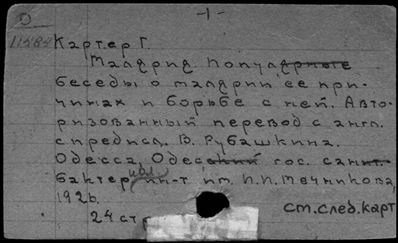 -1-
О
11484
Картер Г.
Малярия. Популярные
беседы о малярии ее при-
чинах и борьбе с ней. Авто-
ризованный перевод с англ.
с предисл. В. Рубашкина.
Одесса, Одесский гос. санит.
бактер ин-т им. И.И. Мечникова,
1926.
24 стр
см.след.карт